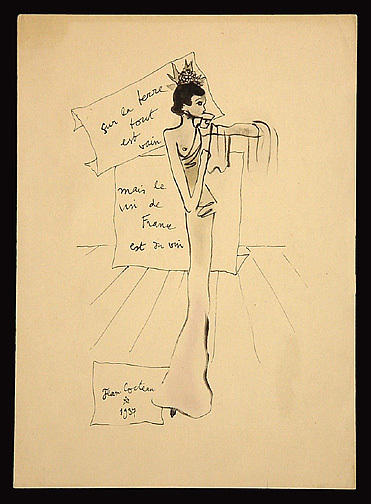 sur la terre
tout
est
vain
mais le
vin de
France
est du vin
Jean Cocteau
1937